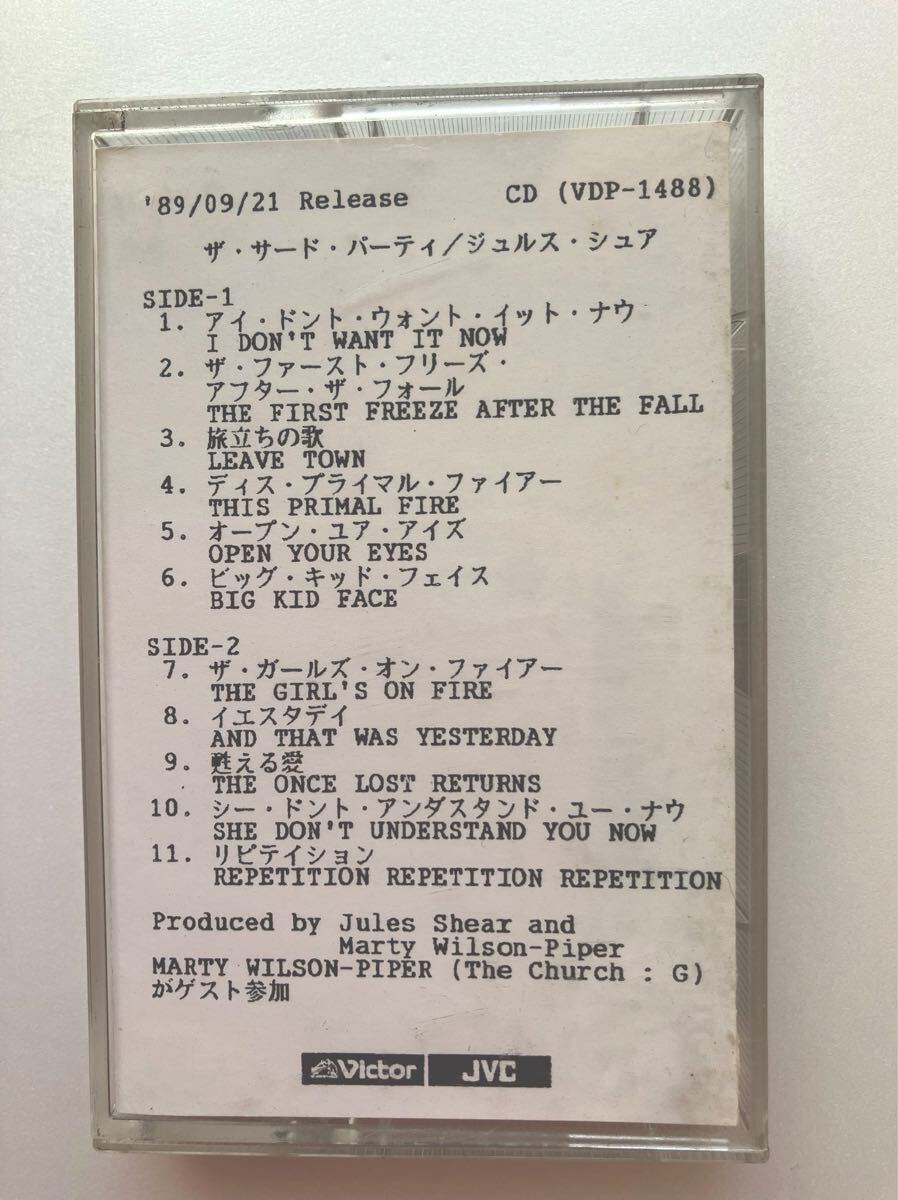 '89/09/21 Release CD (VDP-1488)
ザ・サード・パーティ/ジュルス・シュア
SIDE-1
1. アイ・ドント・ウォント・イット・ナウ
I DON'T WANT IT NOW
2. ザ・ファースト・フリーズ・
アフター・ザ・フォール
THE FIRST FREEZE AFTER THE FALL
3. 旅立ちの歌
LEAVE TOWN
4. ディス・プライマル・ファイアー
THIS PRIMAL FIRE
5. オープン・ユア・アイズ
OPEN YOUR EYES
6. ビッグ・キッド・フェイス
BIG KID FACE
SIDE-2
7. ザ・ガールズ・オン・ファイアー
THE GIRL'S ON FIRE
8. イエスタデイ
AND THAT WAS YESTERDAY
9. 甦える愛
THE ONCE LOST RETURNS
10. シー・ドント・アンダスタンド・ユー・ナウ
SHE DON'T UNDERSTAND YOU NOW
11. リピテイション
REPETITION REPETITION REPETITION
Produced by Jules Shear and
Marty Wilson-Piper
MARTY WILSON-PIPER (The Church : G)
がゲスト参加
Victor JVC